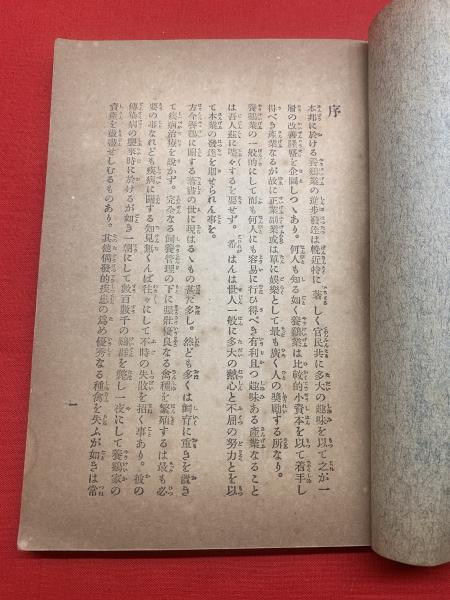 序
本邦に於ける養鷄業の進步發達は輓近特に著しく官民共に多大の趣味を以て之が一
層の改善隆盛を企圖しつゝあり。何人も知る如く養鷄業は比較的小資本を以て着手し
得べき產業なるが故に正業副業或は單に娛樂として最も廣く人の奬勵する所なり。
養鷄業の一般的にして而も何人にも容易に行ひ得べき有利且つ趣味ある產業なること
は吾人茲に喋々するを要せず。希はんは世人一般に多大の熱心と不屈の努力とを以
て本業の發達を期せられん事を。
方今養鷄に關する著書の世に現はるゝもの甚だ多し。然ども多くは飼育に重きを置き
て疾病治療を說かず。完全なる飼養管理の下に强壯優良なる禽種を繁殖するは最も必
要の事なれども疾病に關する知見無くんば往々にして不時の失敗を招く事あり。彼の
傳染病の襲來時に於けるが如き一朝にして數百數千の鷄群を斃し一夜にして養鷄家の
資產を蕩盡せしむるものあり。其他偶發的疾患の爲め優秀なる種禽を失ふが如きは常
一